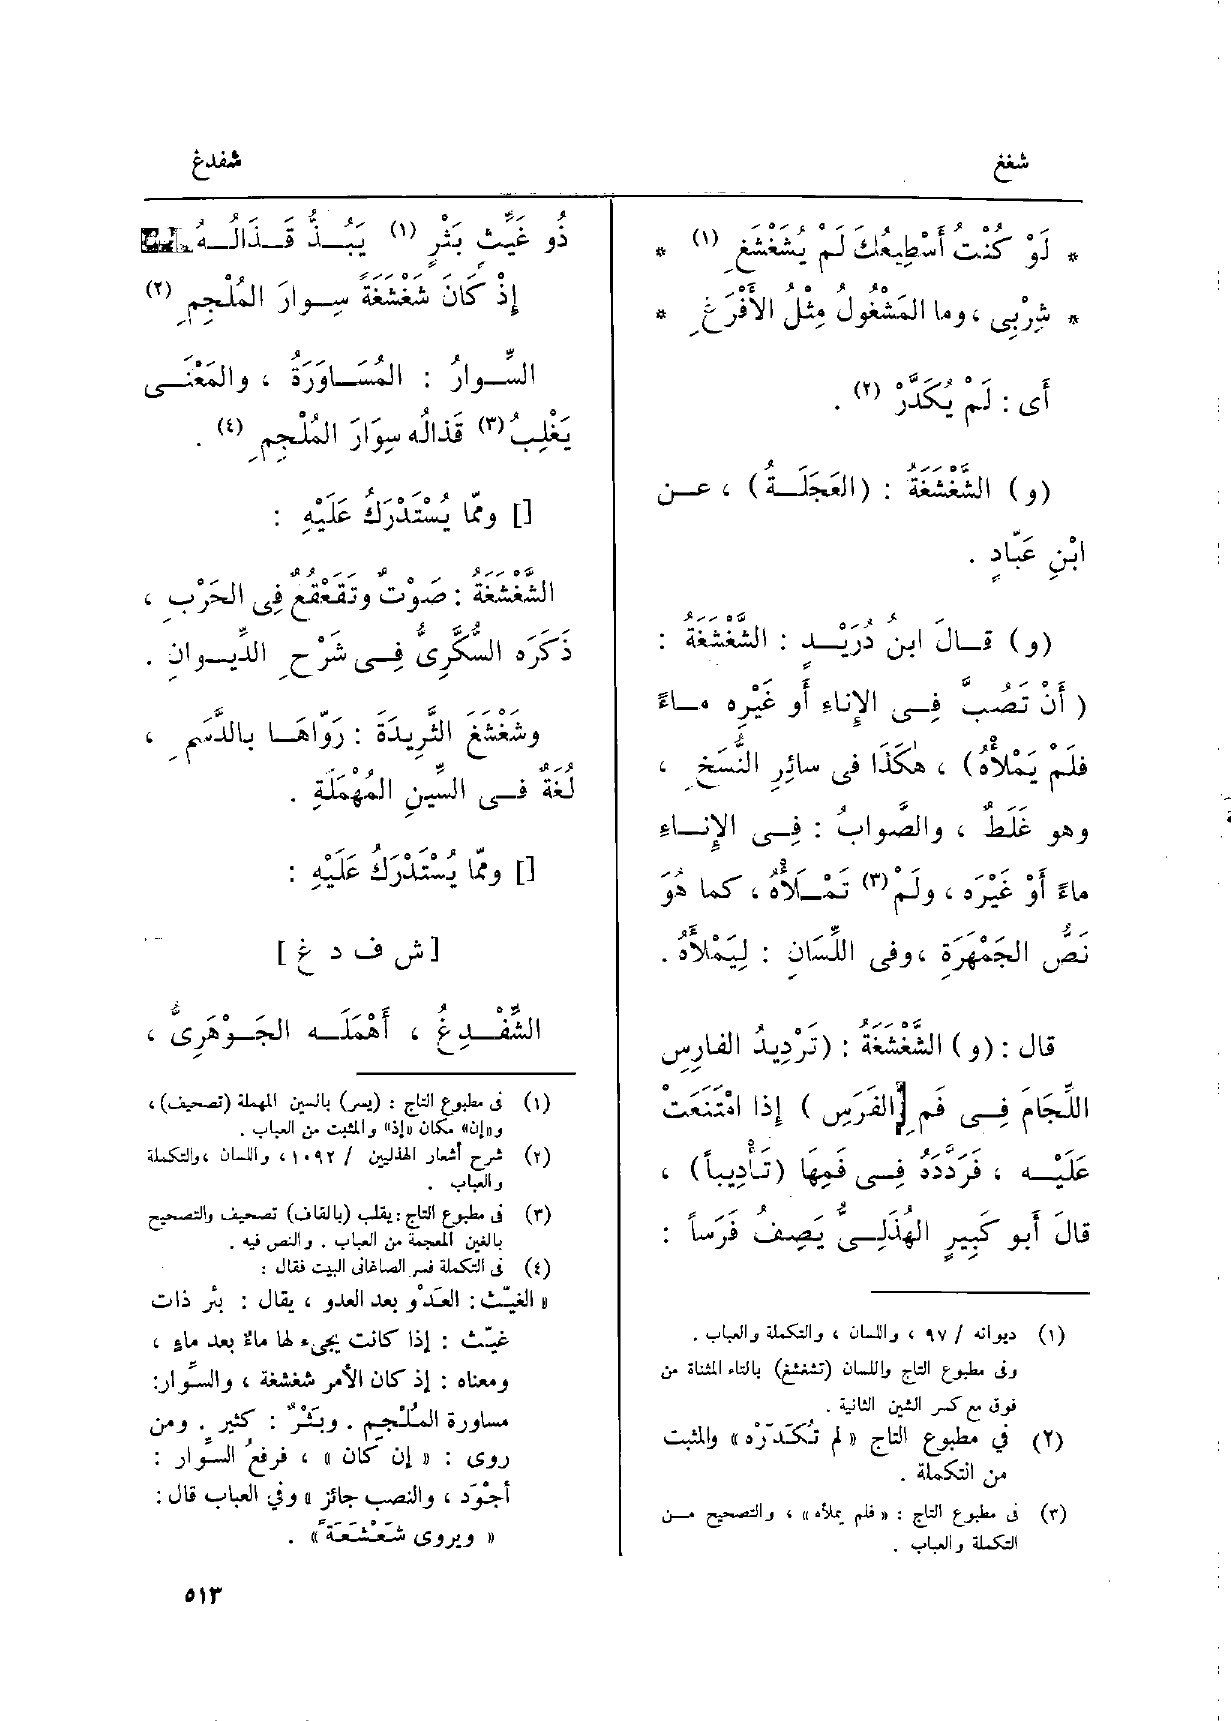 شفغ
شفدغ
* لَوْ كُنْتُ أَسْطِيعُكَ لَمْ يُشَغْشَغِ (١) *
* شِرْبِى ، وما المَشْغُولُ مِثْلُ الأَفْرَغِ *
أَى : لَمْ يُكَدَّرْ (٢) .
(و) الشَّغْشَغَةُ : (العَجَلَةُ) ، عن
ابْنِ عَبّادٍ .
(و) قالَ ابنُ دُرَيْدٍ : الشَّغْشَغَةُ :
( أَنْ تَصُبَّ فِى الإِناءِ أَو غَيْرِه ماءً
فلَمْ يَمْلأْهُ) ، هٰكَذَا فى سائِرِ النُّسَخِ ،
وهو غَلَطٌ ، والصَّوابُ : فِى الإِناءِ
ماءً أَوْ غَيْرَه ، ولَمْ (٣) تَمْلأْهُ ، كما هُوَ
نَصُّ الجَمْهَرَةِ ، وفى اللِّسَانِ : لِيَمْلأَهُ .
قال : (و) الشَّغْشَغَةُ : (تَرْدِيدُ الفارِسِ
اللِّجَامَ فِى فَمِ [الفَرَسِ ) إِذا امْتَنَعَتْ
عَلَيْه ، فَرَدَّدَهُ فِى فَمِهَا (تَأْدِيباً) ،
قالَ أَبو كَبِيرٍ الهُذَلِىُّ يَصِفُ فَرَساً :
(١) ديوانه / ٩٧ ، واللسان ، والتكملة والعباب .
وفى مطبوع التاج واللسان (تشغشغ) بالتاء المثناة من
فوق مع كسر الشين الثانية .
(٢) في مطبوع التاج « لم تُكَدّرْه » والمثبت
من التكملة .
(٣) فى مطبوع التاج : « فلم يملأه » ، والتصحيح من
التكملة والعباب .
ذُو غَيِّثٍ بَثْرٍ (١) يَبُذُّ قَذَالُهُ
إِذْ كَانَ شَغْشَغَةً سِوارَ المُلْجِمِ (٢)
السِّوارُ : المُسَاوَرَةُ ، والمَعْنَى
يَغْلِبُ (٣) قَذالُه سِوَارَ المُلْجِمِ (٤) .
[] وممّا يُسْتَدْرَكُ عَلَيْهِ :
الشَّغْشَغَةُ : صَوْتٌ وتَقَعْقُعٌ فِى الحَرْبِ ،
ذَكَرَه السُّكَّرِىُّ فِى شَرْحِ الدِّيوانِ .
وشَغْشَغَ الثَّرِيدَةَ : رَوّاهَا بالدَّسَمِ ،
لُغَةٌ فى السِّينِ المُهْمَلَةِ .
[] وممّا يُسْتَدْرَكُ عَلَيْهِ :
[ ش ف د غ ]
الشِّفْدِغُ ، أَهْمَلَه الجَوْهَرِىُّ ،
(١) فى مطبوع التاج : (يسر) بالسين المهملة (تصحيف) ،
و«إن» مكان «إذ» والمثبت من العباب .
(٢) شرح أشعار الهذليين / ١٠٩٢ ، واللسان ، والتكملة
والعباب .
(٣) فى مطبوع التاج : يقلب (بالقاف) تصحيف والتصحيح
بالغين المعجمة من العباب . والنص فيه .
(٤) فى التكملة فسر الصاغانى البيت فقال :
« الغيِّث : العَدْو بعد العدو ، يقال : بئر ذات
غيِّث : إذا كانت يجيء لها ماءٌ بعد ماءٍ ،
ومعناه : إذ كان الأمر شغشغة ، والسِّوار:
مساورة المُلْجِم . وبَثْرٌ : كثير . ومن
روى : « إن كان » ، فرفعُ السِّوار :
أجْوَد ، والنصب جائز » وفي العباب قال :
« ويروى شَعْشَعَةً » .
٥١٣